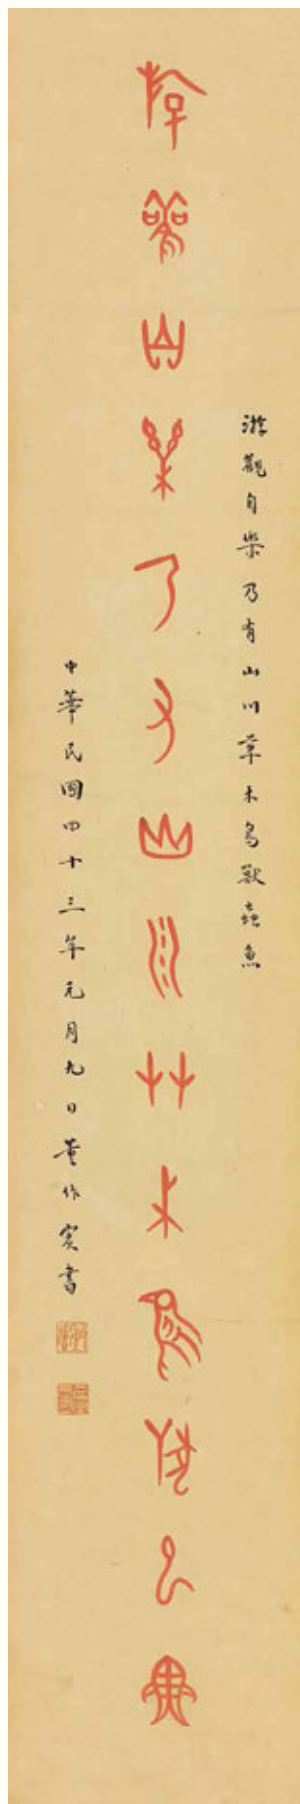 游觀自樂乃有山川草木鳥獸虫魚
游觀自樂乃有山川艸木鳥獸虫魚
中華民國四十三年元月九日董作賓書